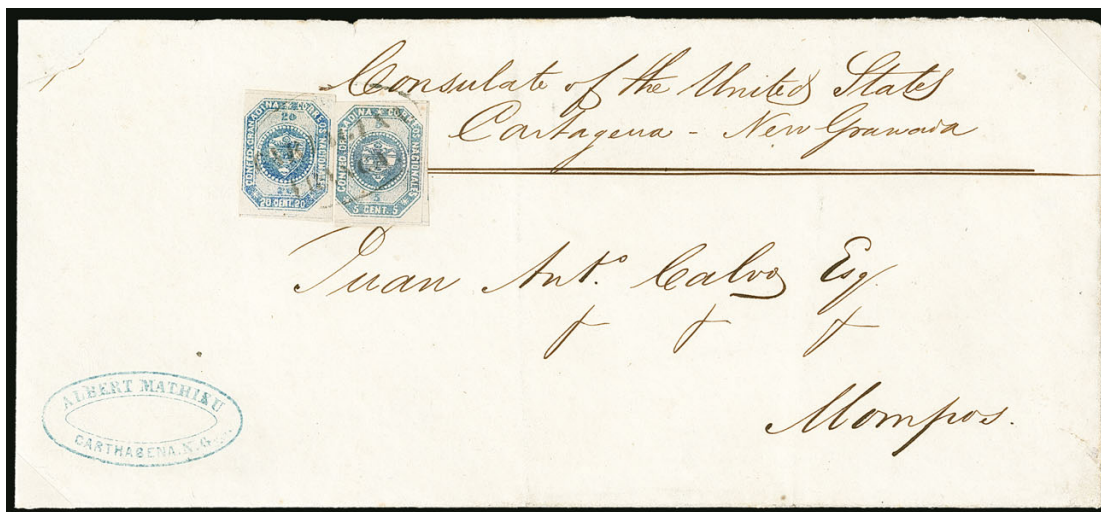 Consulate of the United States
Cartagena - New Granada
CONFED. GRANADINA CORREOS NACIONALES
20
20 CENT. 20
CONFED. GRANADINA CORREOS NACIONALES
5
5 CENT. 5
CARTAGENA
FRANCA
Juan Anto. Calvo Esq
Mompos.
ALBERT MATHIEU
CARTHAGENA. N. G.